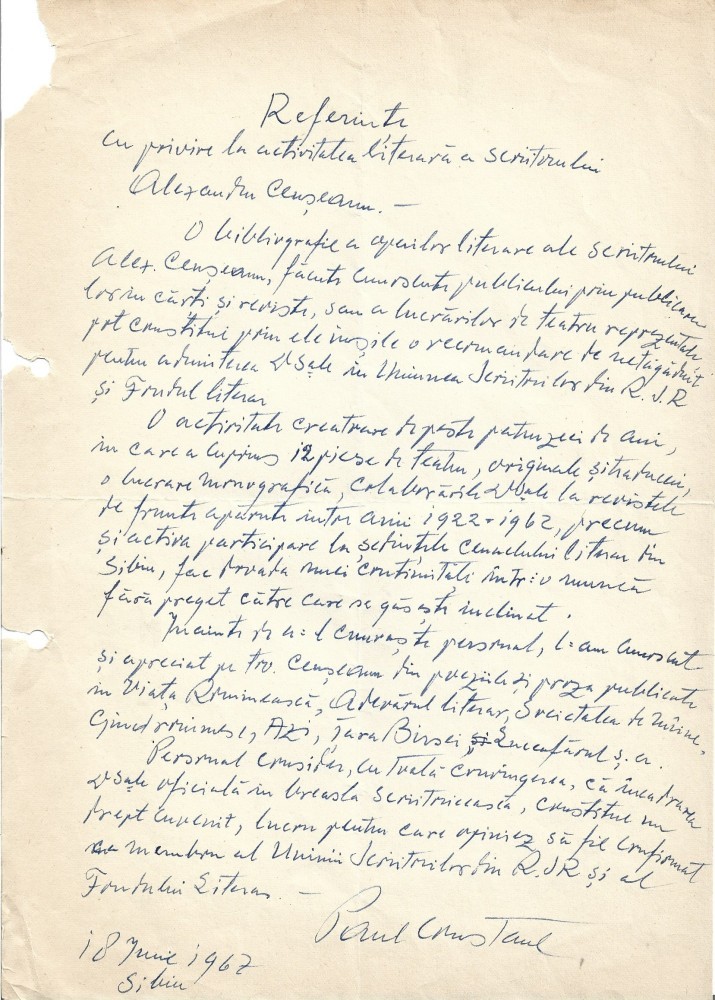 Referințe
cu privire la activitatea literară a scriitorului
Alexandru Ceușeanu. —
O bibliografie a operilor literare ale scriitorului
Alex. Ceușeanu, făcute cunoscute publicului prin publicarea
lor în cărți și reviste, sau a lucrărilor de teatru reprezentate
pot constitui prin ele însșile o recomandare de netăgăduit
pentru admiterea Dsale în Uniunea Scriitorilor din R.S.R
și Fondul literar
O activitate creatoare de peste patruzeci de ani,
în care a cuprins 12 piese de teatru, originale și traduceri,
o lucrare monografică, colaborările Dsale la revistele
de frunte apărute între anii 1922-1967, precum
și activa participare la ședințele cenaclului literar din
Sibiu, fac dovada unei continuități într-o muncă
fără preget către care se găsește inclinat.
Înainte de a-l cunoaște personal, l-am cunoscut
și apreciat pe tov. Ceușeanu din poeziile și proza publicate
în Viața Romînească, Adevărul literar, Societatea de mîine,
Gînd românesc, Azi, Țara Bîrsei și Luceafărul ș.a.
Personal consider, cu toată convingerea, că încadrarea
Dsale oficială în breasla scriitoricească, constitue un
drept cuvenit, lucru pentru care opiniez să fie confirmat
membru al Uniunii Scriitorilor din R.S.R și al
Fondului Literar. —
Paul Constant
18 Iunie 1967
Sibiu